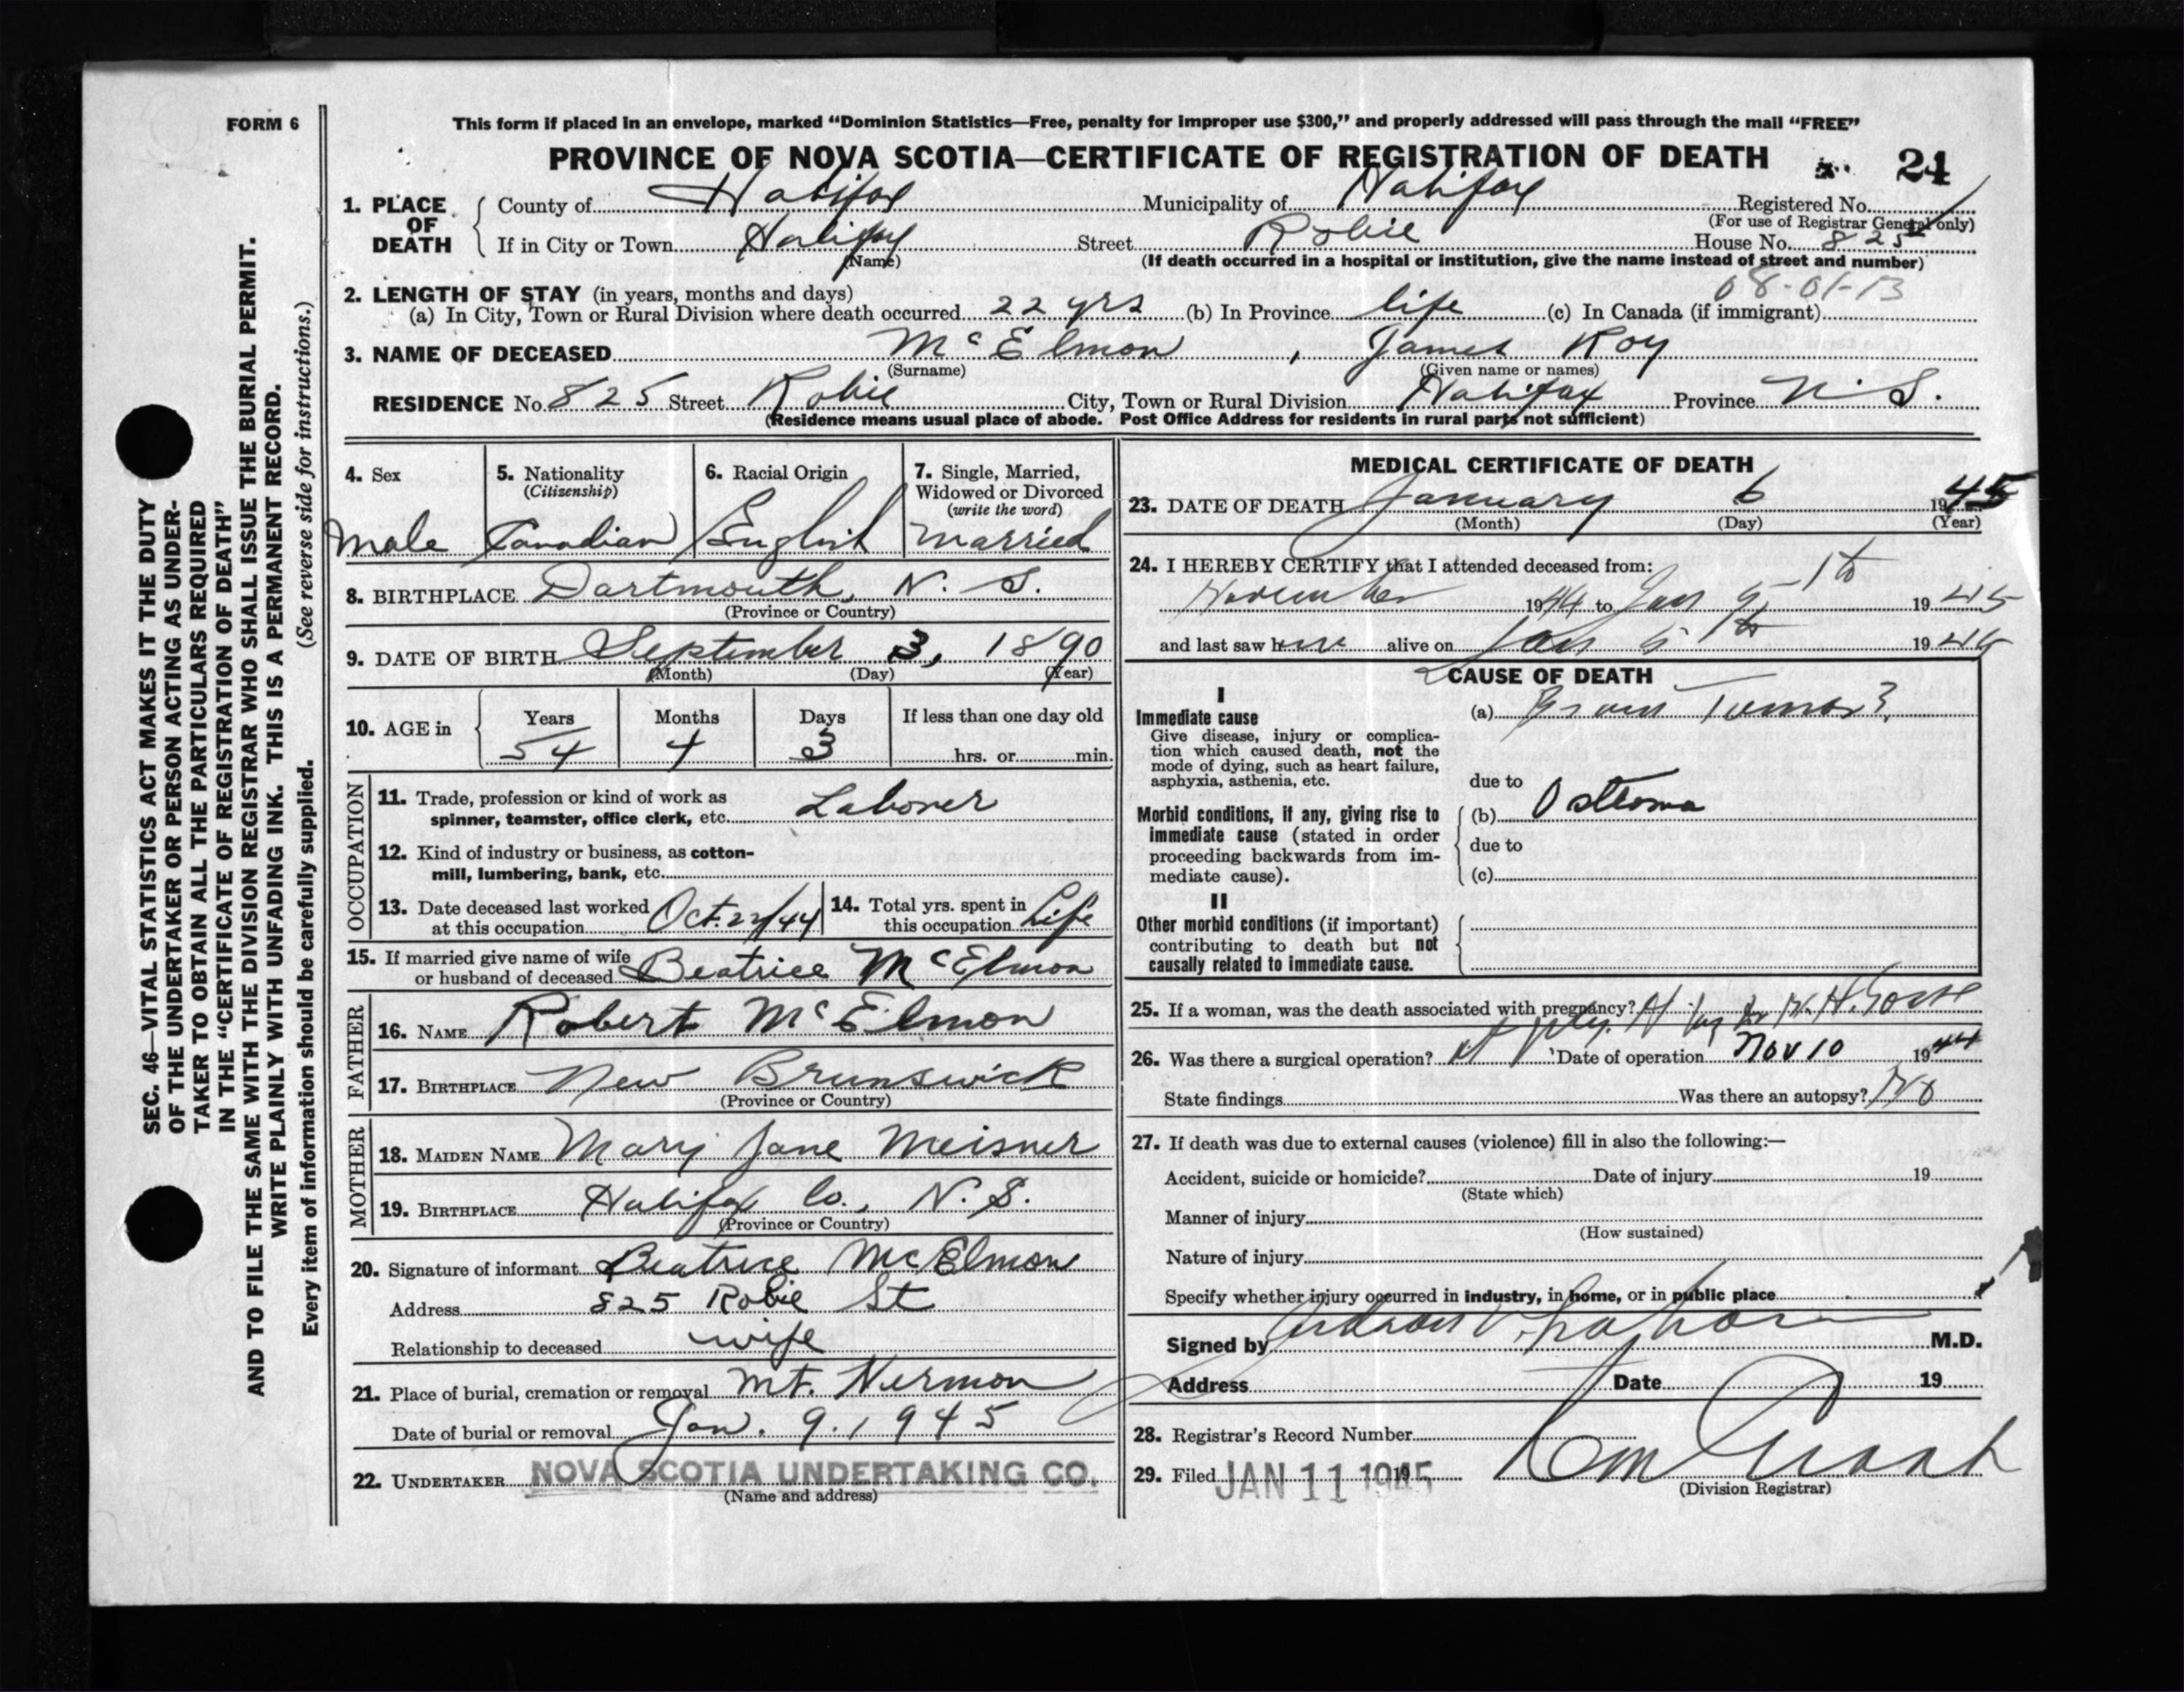 FORM 6
This form if placed in an envelope, marked “Dominion Statistics—Free, penalty for improper use $300,” and properly addressed will pass through the mail “FREE”
PROVINCE OF NOVA SCOTIA—CERTIFICATE OF REGISTRATION OF DEATH 24
1. PLACE OF DEATH
County of Halifax Municipality of Halifax Registered No.
(For use of Registrar General only)
If in City or Town Halifax Street Robie House No. 825
(Name) (If death occurred in a hospital or institution, give the name instead of street and number)
08-01-13
2. LENGTH OF STAY (in years, months and days)
(a) In City, Town or Rural Division where death occurred 22 yrs (b) In Province life (c) In Canada (if immigrant)
3. NAME OF DECEASED McElmon, James Roy
(Surname) (Given name or names)
RESIDENCE No. 825 Street Robie City, Town or Rural Division Halifax Province N. S.
(Residence means usual place of abode. Post Office Address for residents in rural parts not sufficient)
4. Sex
Male
5. Nationality
(Citizenship)
Canadian
6. Racial Origin
English
7. Single, Married,
Widowed or Divorced
(write the word)
Married
8. BIRTHPLACE Dartmouth, N. S.
(Province or Country)
9. DATE OF BIRTH September 3, 1890
(Month) (Day) (Year)
10. AGE in
Years Months Days If less than one day old
54 4 3 hrs. or min.
OCCUPATION
11. Trade, profession or kind of work as
spinner, teamster, office clerk, etc. Laborer
12. Kind of industry or business, as cotton-
mill, lumbering, bank, etc.
13. Date deceased last worked
at this occupation Oct. 22/44
14. Total yrs. spent in
this occupation Life
15. If married give name of wife
or husband of deceased Beatrice McElmon
FATHER
16. NAME Robert McElmon
17. BIRTHPLACE New Brunswick
(Province or Country)
MOTHER
18. MAIDEN NAME Mary Jane Meisner
19. BIRTHPLACE Halifax Co., N. S.
(Province or Country)
20. Signature of informant Beatrice McElmon
Address 825 Robie St
Relationship to deceased wife
21. Place of burial, cremation or removal Mt. Hermon
Date of burial or removal Jan. 9. 1945
22. UNDERTAKER NOVA SCOTIA UNDERTAKING CO.
(Name and address)
MEDICAL CERTIFICATE OF DEATH
23. DATE OF DEATH January 6 1945
(Month) (Day) (Year)
24. I HEREBY CERTIFY that I attended deceased from:
November 1944 to Jan 1945
and last saw h alive on Jan 19
CAUSE OF DEATH
I
Immediate cause
Give disease, injury or complica-
tion which caused death, not the
mode of dying, such as heart failure,
asphyxia, asthenia, etc.
(a) Brain Tumor?
due to
Morbid conditions, if any, giving rise to
immediate cause (stated in order
proceeding backwards from im-
mediate cause).
(b) Osteoma
due to
(c)
II
Other morbid conditions (if important)
contributing to death but not
causally related to immediate cause.
25. If a woman, was the death associated with pregnancy?
26. Was there a surgical operation? Date of operation Nov 10 1944
State findings Was there an autopsy? No
27. If death was due to external causes (violence) fill in also the following:—
Accident, suicide or homicide? Date of injury 19
(State which)
Manner of injury
(How sustained)
Nature of injury
Specify whether injury occurred in industry, in home, or in public place
Signed by M.D.
Address Date 19
28. Registrar's Record Number
29. Filed JAN 11 1945 19
(Division Registrar)
SEC. 46—VITAL STATISTICS ACT MAKES IT THE DUTY
OF THE UNDERTAKER OR PERSON ACTING AS UNDER-
TAKER TO OBTAIN ALL THE PARTICULARS REQUIRED
IN THE “CERTIFICATE OF REGISTRATION OF DEATH”
AND TO FILE THE SAME WITH THE DIVISION REGISTRAR WHO SHALL ISSUE THE BURIAL PERMIT.
WRITE PLAINLY WITH UNFADING INK. THIS IS A PERMANENT RECORD.
Every item of information should be carefully supplied. (See reverse side for instructions.)